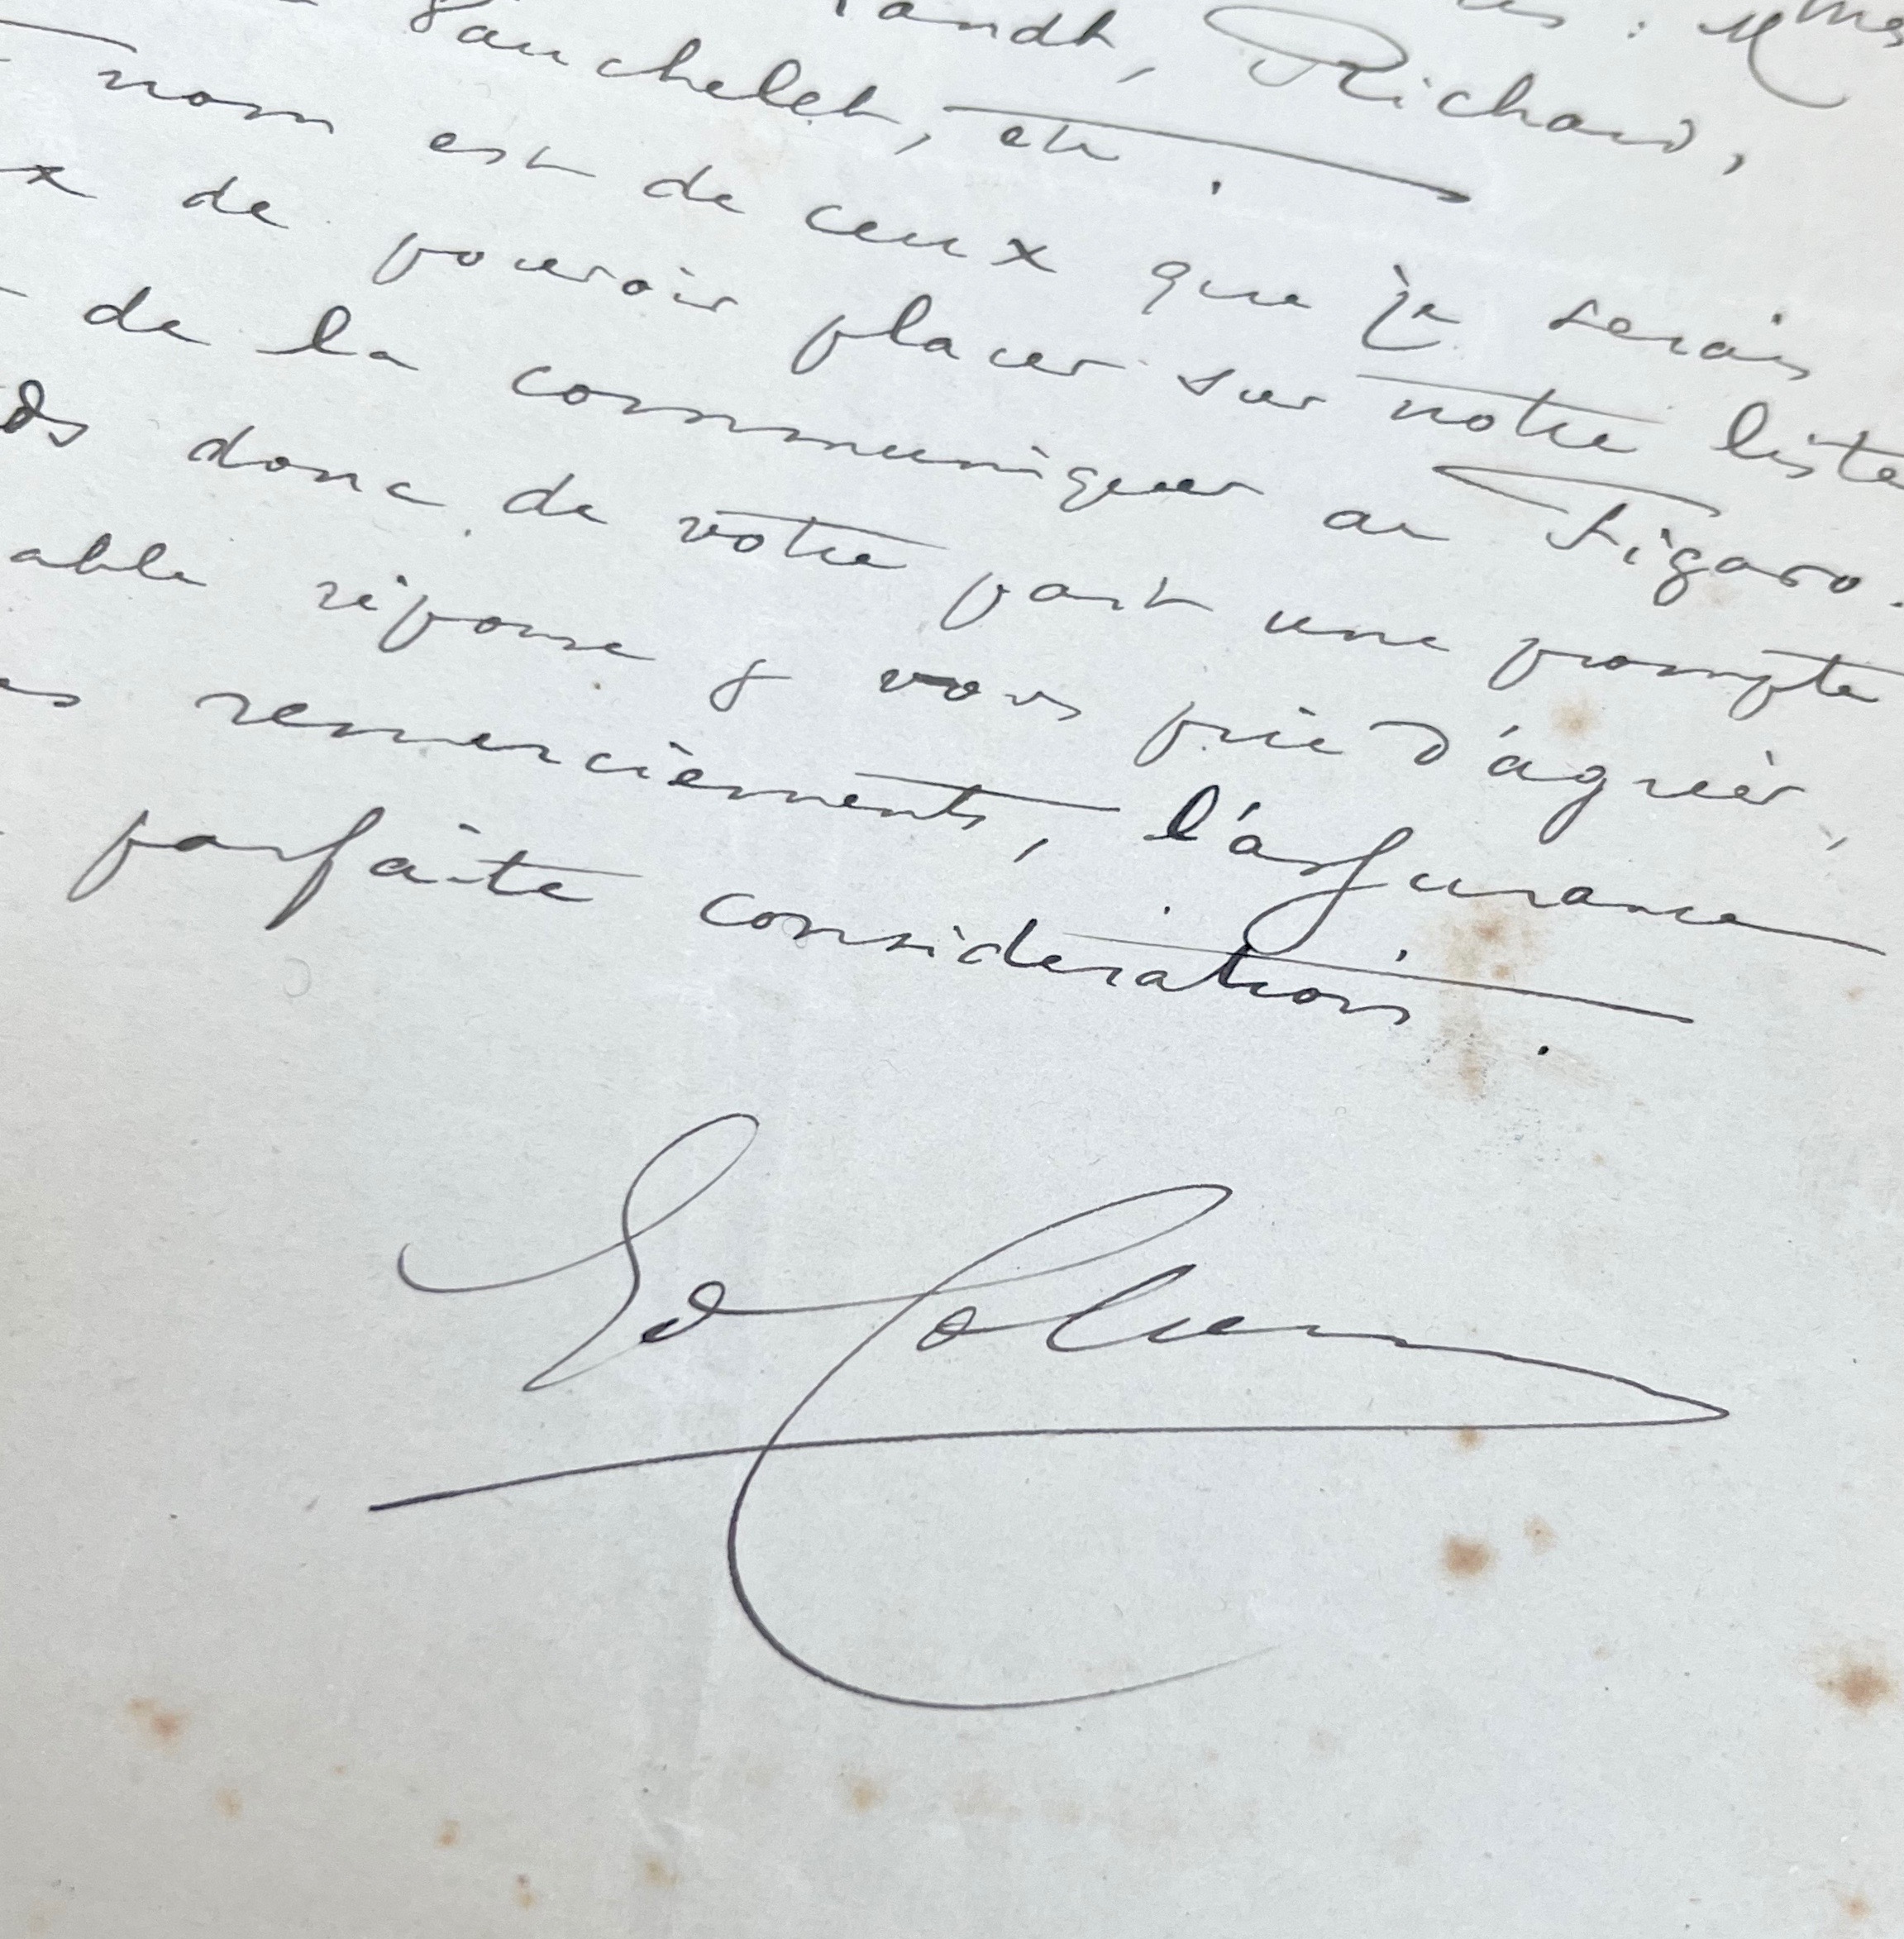 : Mmes
andt, Richard,
Vauchelet, etc.
nom est de ceux que je serais
x de pouvoir placer sur notre liste
de la communiquer au Figaro.
ds donc de votre part une prompte
able réponse & vous prie d'agréer,
es remerciements, l'assurance
parfaite considération.
Ed Colonne